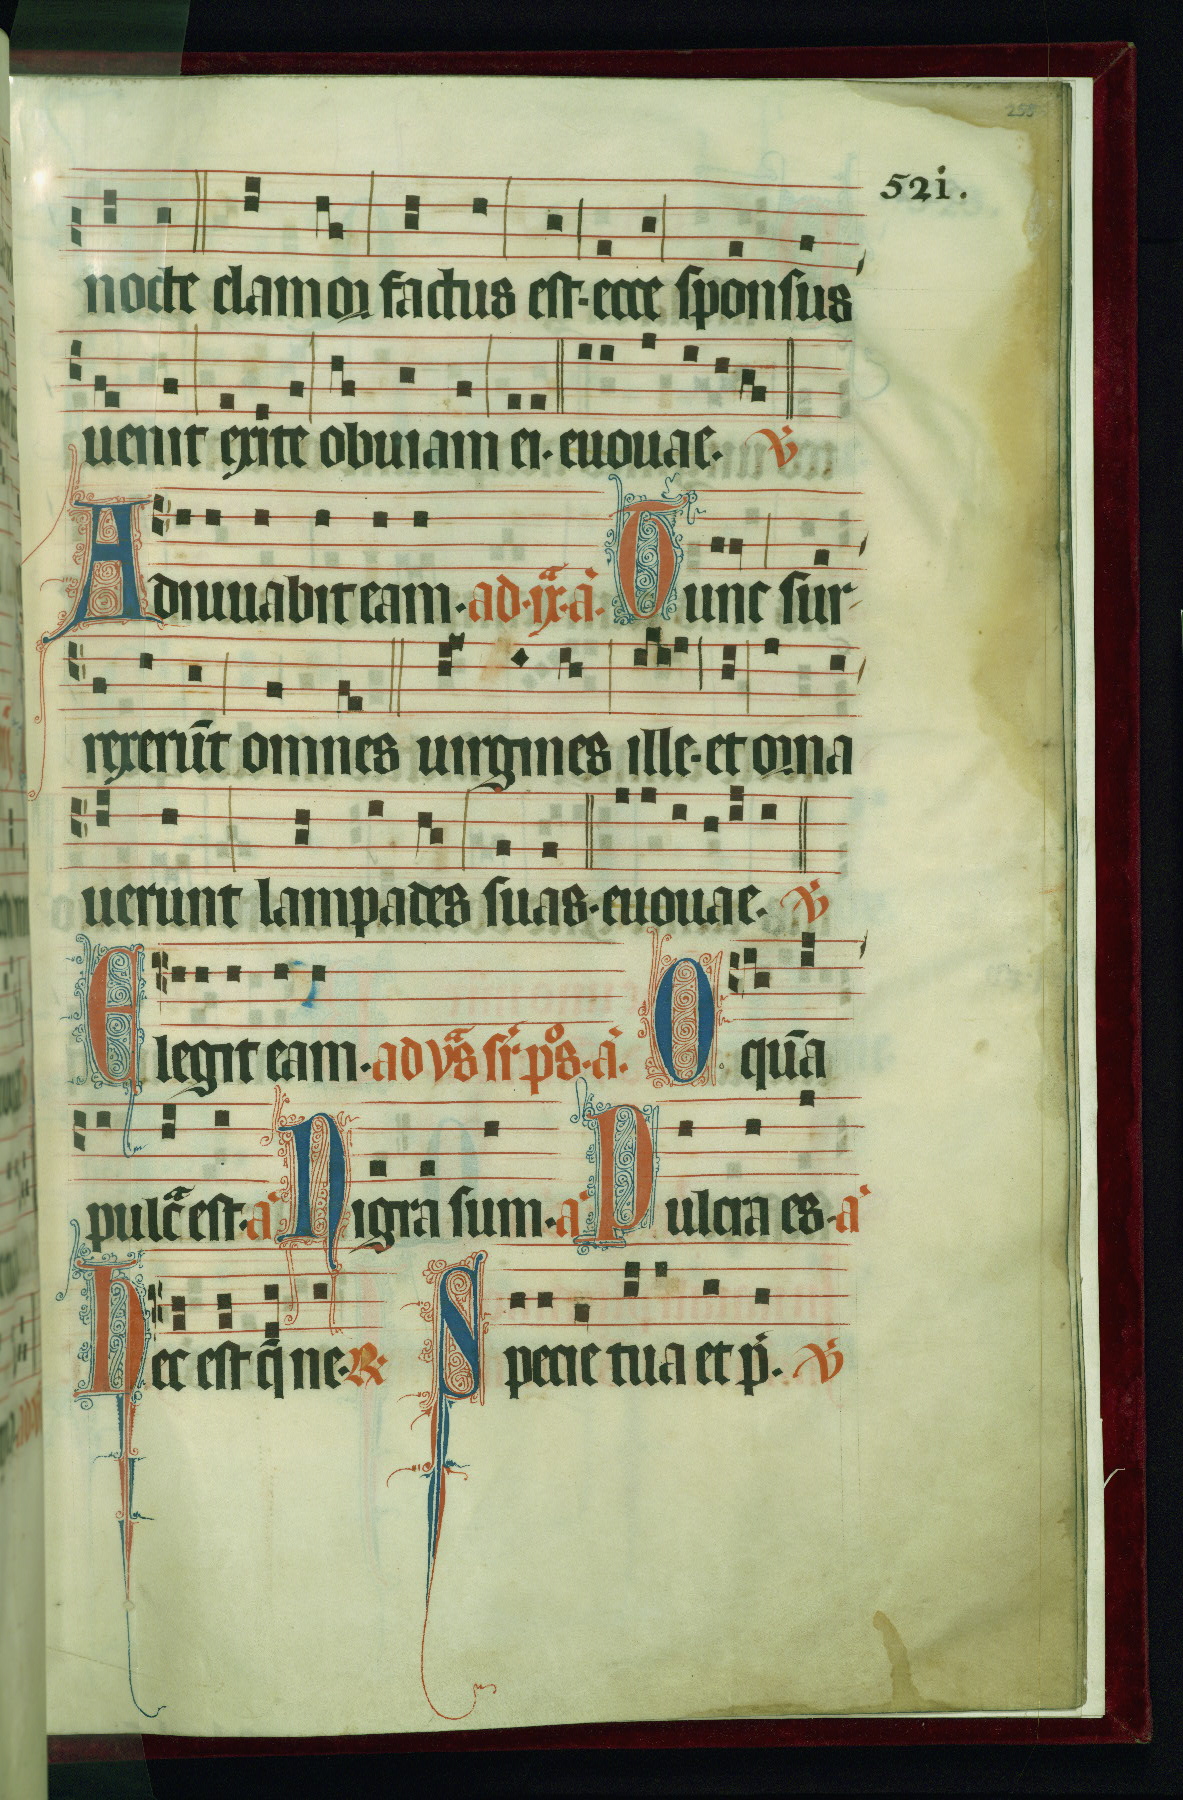 255
52i.
nocte clamor factus est. ecce sponsus
uenit exite obuiam ei. euouae. V̇
Adiuuabit eam. ad. ix̄. a᷎. Tunc sur
rexerūt omnes uirgines ille. et orna
uerunt lampades suas. euouae. V̇
Elegit eam. ad vs̄ sr̄ pōs. a᷎. O qūa
pulcᵃ est. a᷎ Nigra sum. a᷎ Pulcra es. a᷎
Hec est q̄ ne. R. Specie tua et p̄. V̇